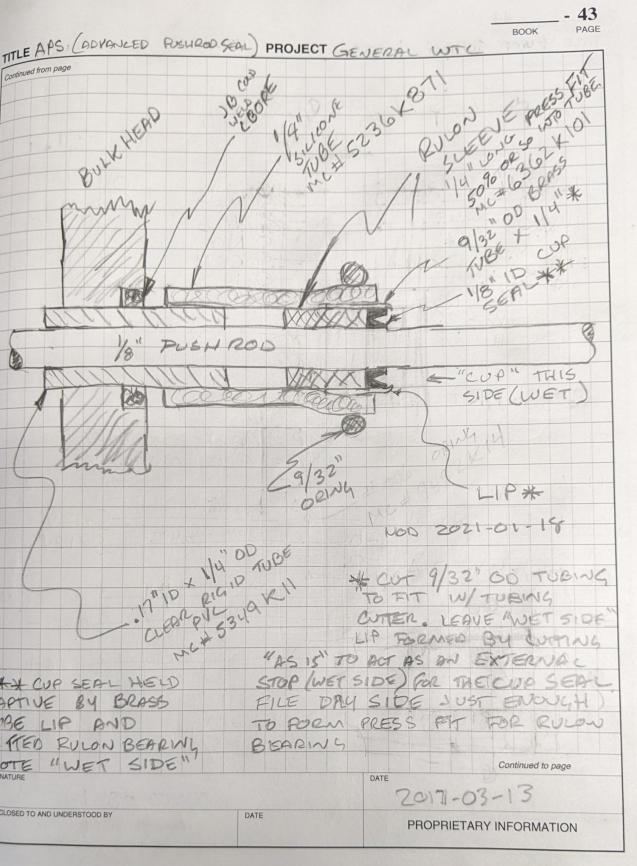 - 43
BOOK
PAGE
TITLE APS: (ADVANCED PUSHROD SEAL) PROJECT GENERAL WTC
Continued from page
BULKHEAD
JB COLD
WELD
CBORE
1/4"
SILICONE
TUBE
MC# 5236K871
RULON
SLEEVE
1/4" LONG PRESS FIT
50% OR SO INTO TUBE.
MC#6362K101
9/32" OD BRASS
TUBE X 1/4" *
1/8" ID CUP
SEAL **
1/8" PUSHROD
"CUP" THIS
SIDE (WET)
9/32"
ORING
LIP *
MOD 2021-01-18
.17" ID X 1/4" OD
CLEAR RIGID TUBE
PVC
MC# 5349K11
* CUT 9/32" OD TUBING
TO FIT W/ TUBING
CUTTER. LEAVE "WET SIDE"
LIP FORMED BY CUTTING
"AS IS" TO ACT AS AN EXTERNAL
STOP (WET SIDE) FOR THE CUP SEAL.
FILE DRY SIDE JUST ENOUGH
TO FORM PRESS FIT FOR RULON
BEARING
** CUP SEAL HELD
APTIVE BY BRASS
BE LIP AND
TTED RULON BEARING
OTE "WET SIDE"
Continued to page
NATURE
DATE
2017-03-13
CLOSED TO AND UNDERSTOOD BY
DATE
PROPRIETARY INFORMATION